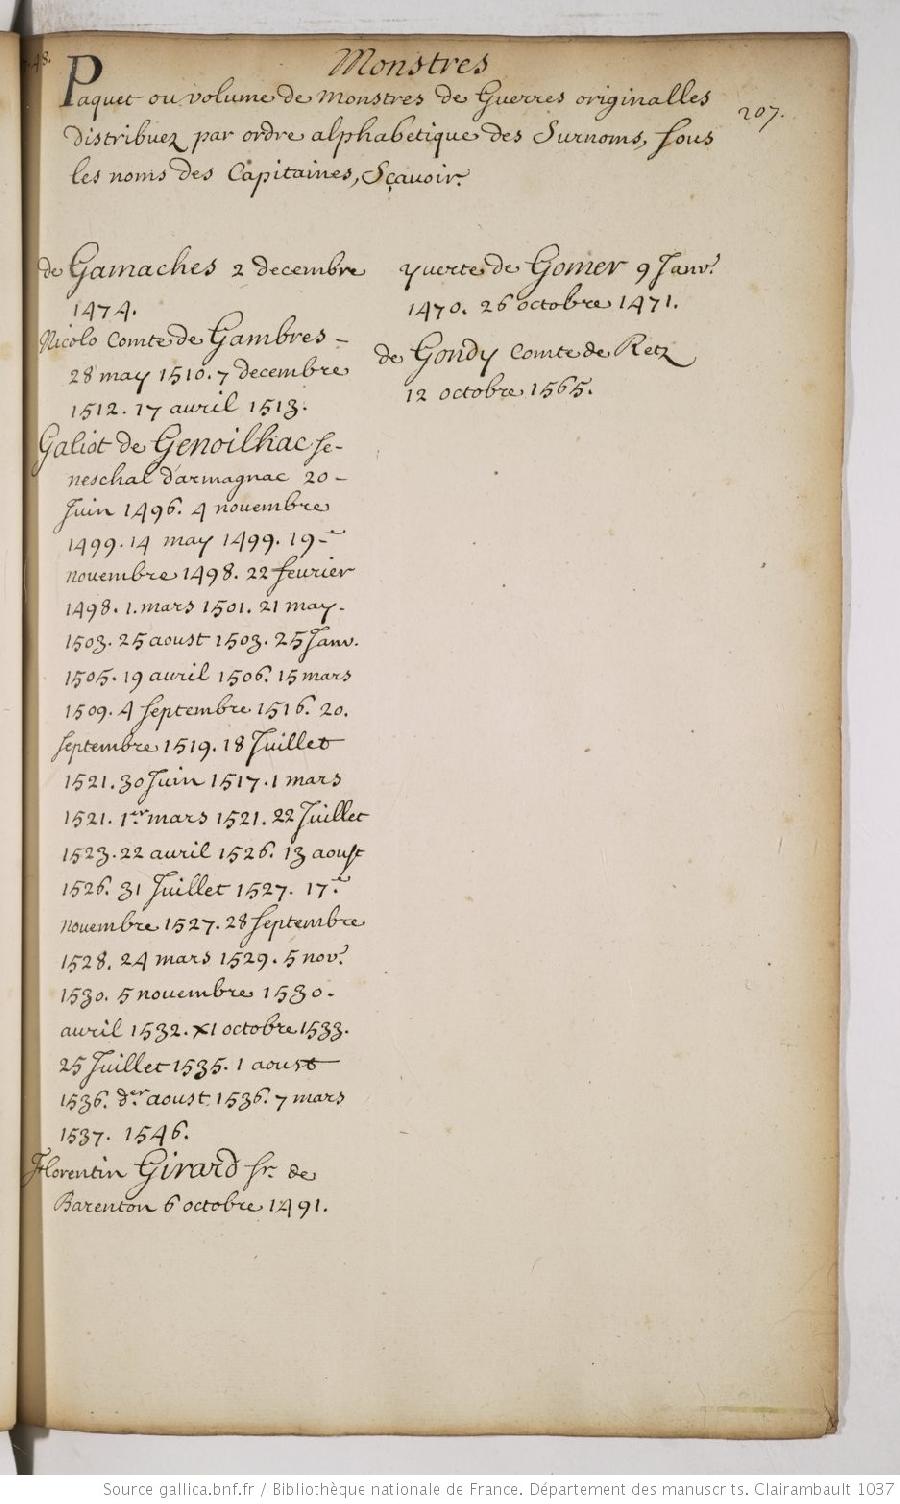 Monstres
207.
Paquet ou volume de monstres de Guerres originalles
distribuez par ordre alphabetique des Surnoms, sous
les noms des Capitaines, Sçauoir.
de Gamaches 2 decembre
1474.
Nicolo Comte de Gambres -
28 may 1510. 7 decembre
1512. 17 auril 1513.
Galiot de Genoilhac se-
neschal d'armagnac 20 -
Juin 1496. 4 novembre
1499. 14 may 1499. 19 -e
novembre 1498. 22 feurier
1498. 1. mars 1501. 21 may -
1503. 25 aoust 1503. 25 Janv.
1505. 19 auril 1506. 15 mars
1509. 4 septembre 1516. 20.
septembre 1519. 18 Juillet
1521. 30 Juin 1517. 1 mars
1521. 1er mars 1521. 22 Juillet
1523. 22 auril 1526. 13 aoust
1526. 31 Juillet 1527. 17.e
novembre 1527. 28 septembre
1528. 24 mars 1529. 5 nov.
1530. 5 novembre 1530 -
auril 1532. x1 octobre 1533.
25 Juillet 1535. 1 aoust
1536. der aoust 1536. 7 mars
1537. 1546.
Florentin Girard sr. de
Barenton 6 octobre 1491.
yuerte de Gomer 9 Janv.
1470. 26 octobre 1471.
de Gondy Comte de Retz
12 octobre 1565.
Source gallica.bnf.fr / Bibliothèque nationale de France. Département des manuscrits. Clairambault 1037